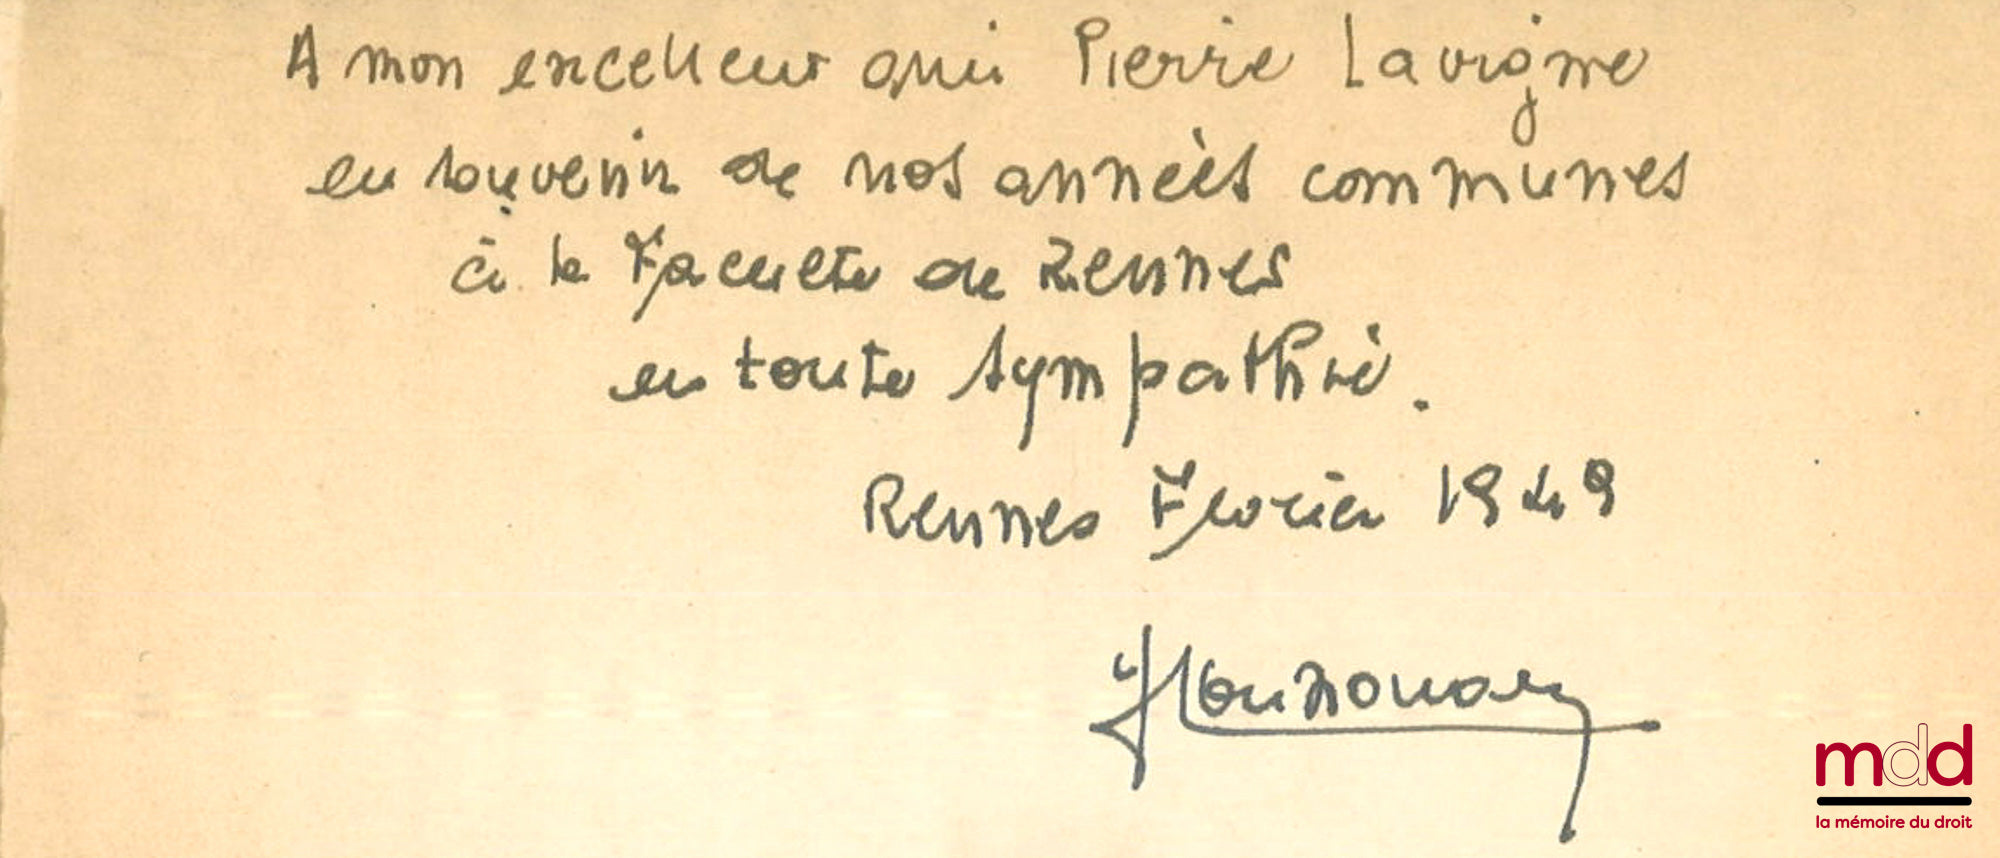 A mon excellent ami Pierre Lavigne
en souvenir de nos années communes
à la Faculté de Rennes
en toute sympathie.
Rennes Février 1949
mdd
la mémoire du droit